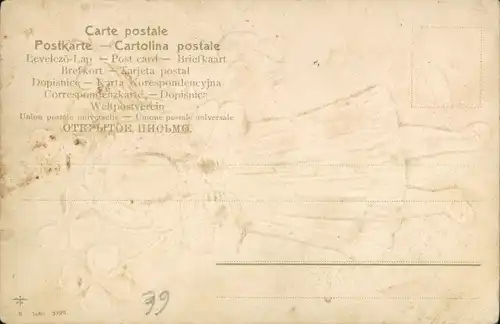 Carte postale
Postkarte — Cartolina postale
Levelező-Lap — Post card — Briefkaart
Brefkort — Tarjeta postal
Dopisnice — Karta Korespondencyjna
Correspondenzkarte — Dopisnice
Weltpostverein
Union postale universelle — Unione postale universale
ОТКРЫТОЕ ПИСЬМО.